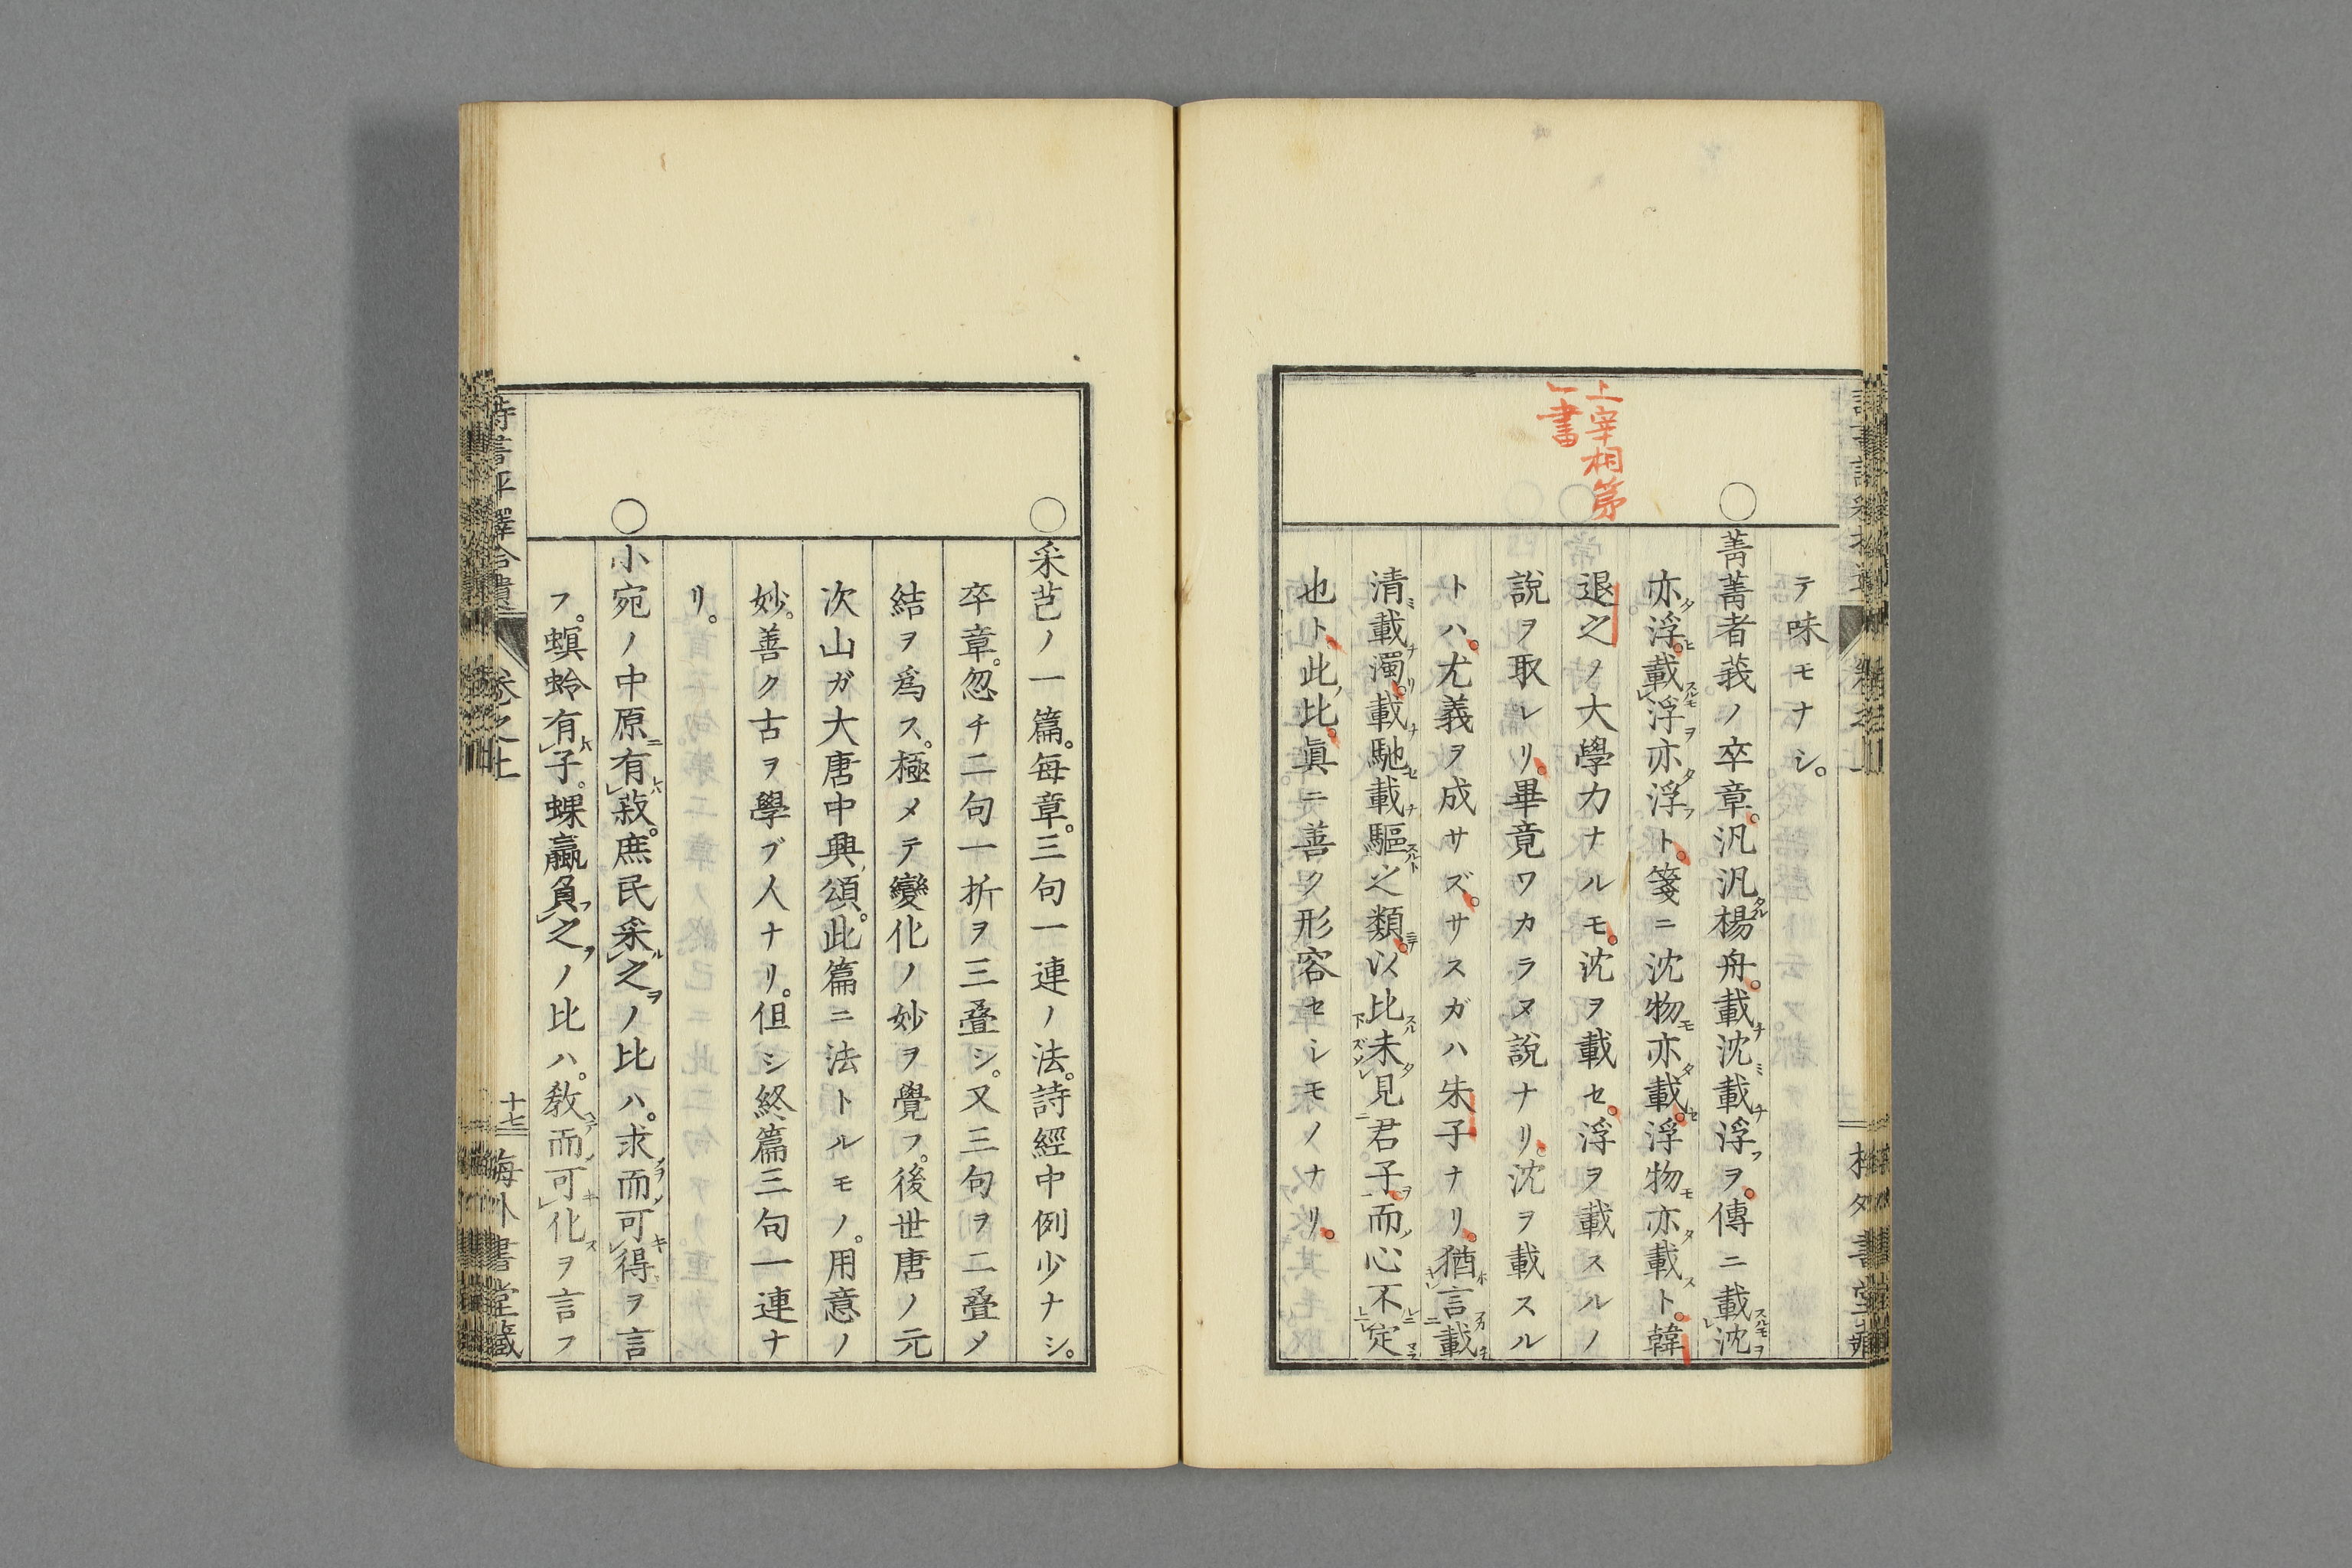 テ味モナシ。
○菁菁者莪ノ卒章。汎汎楊舟。載沈載浮ヲ。傳ニ載沈
亦浮。載浮亦浮ト。箋ニ沈物亦載。浮物亦載ト。韓
退之ノ大學力ナルモ。沈ヲ載セ。浮ヲ載スルノ
說ヲ取レリ。畢竟ワカラヌ說ナリ。沈ヲ載スル
トハ。尤義ヲ成サズ。サスガハ朱子ナリ。猶言載
清載濁。載馳載驅之類。以比未見君子。而心不定
也ト。此比。眞ニ善ク形容セシモノナリ。
上宰相第
一書
○采芑ノ一篇。每章。三句一連ノ法。詩經中例少ナシ。
卒章。忽チ二句一折ヲ三疊シ。又三句ヲ二疊メ
結ヲ爲ス。極メテ變化ノ妙ヲ覺フ。後世唐ノ元
次山ガ大唐中興頌。此篇ニ法トルモノ。用意ノ
妙。善ク古ヲ學ブ人ナリ。但シ終篇三句一連ナ
リ。
○小宛ノ中原有菽。庶民采之ノ比ハ。求而可得ヲ言
フ。螟蛉有子。蜾蠃負之ノ比ハ。敎而可化ヲ言フ
卷之上
十七
海外書堂藏